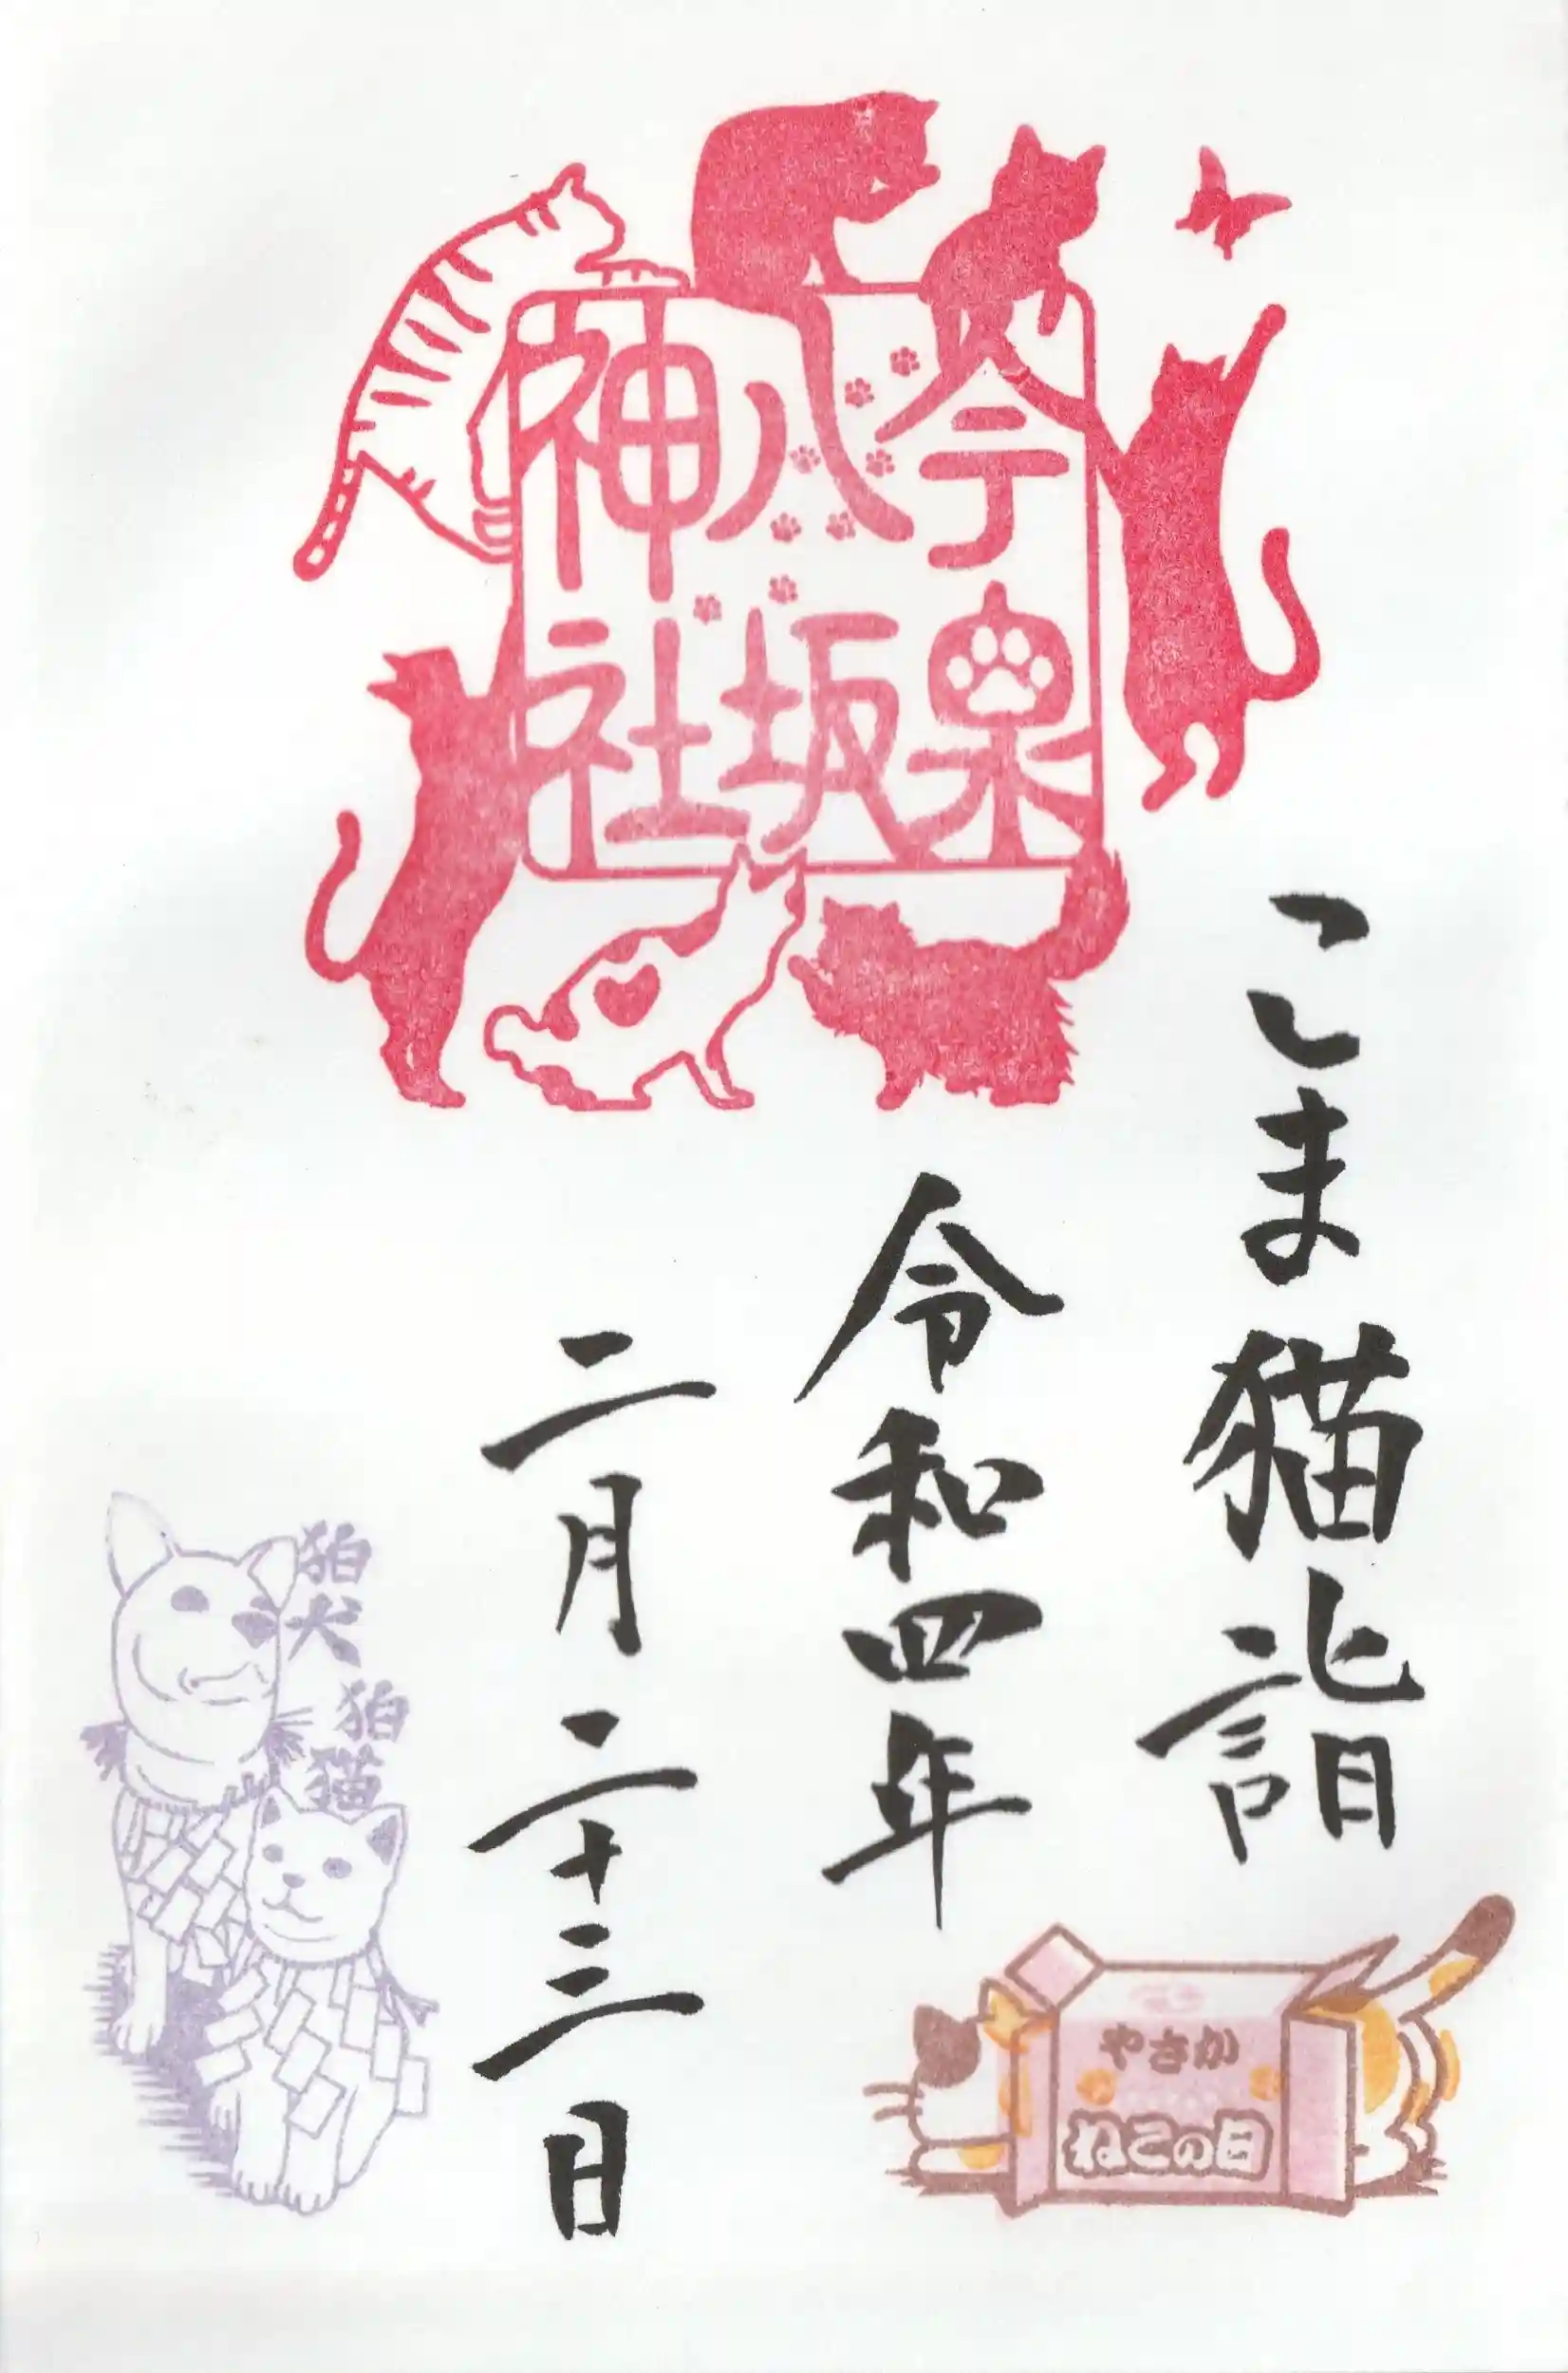 今泉
八坂
神社
こま猫詣
令和四年
二月二十三日
狛犬
狛猫
やさか
ねこの日